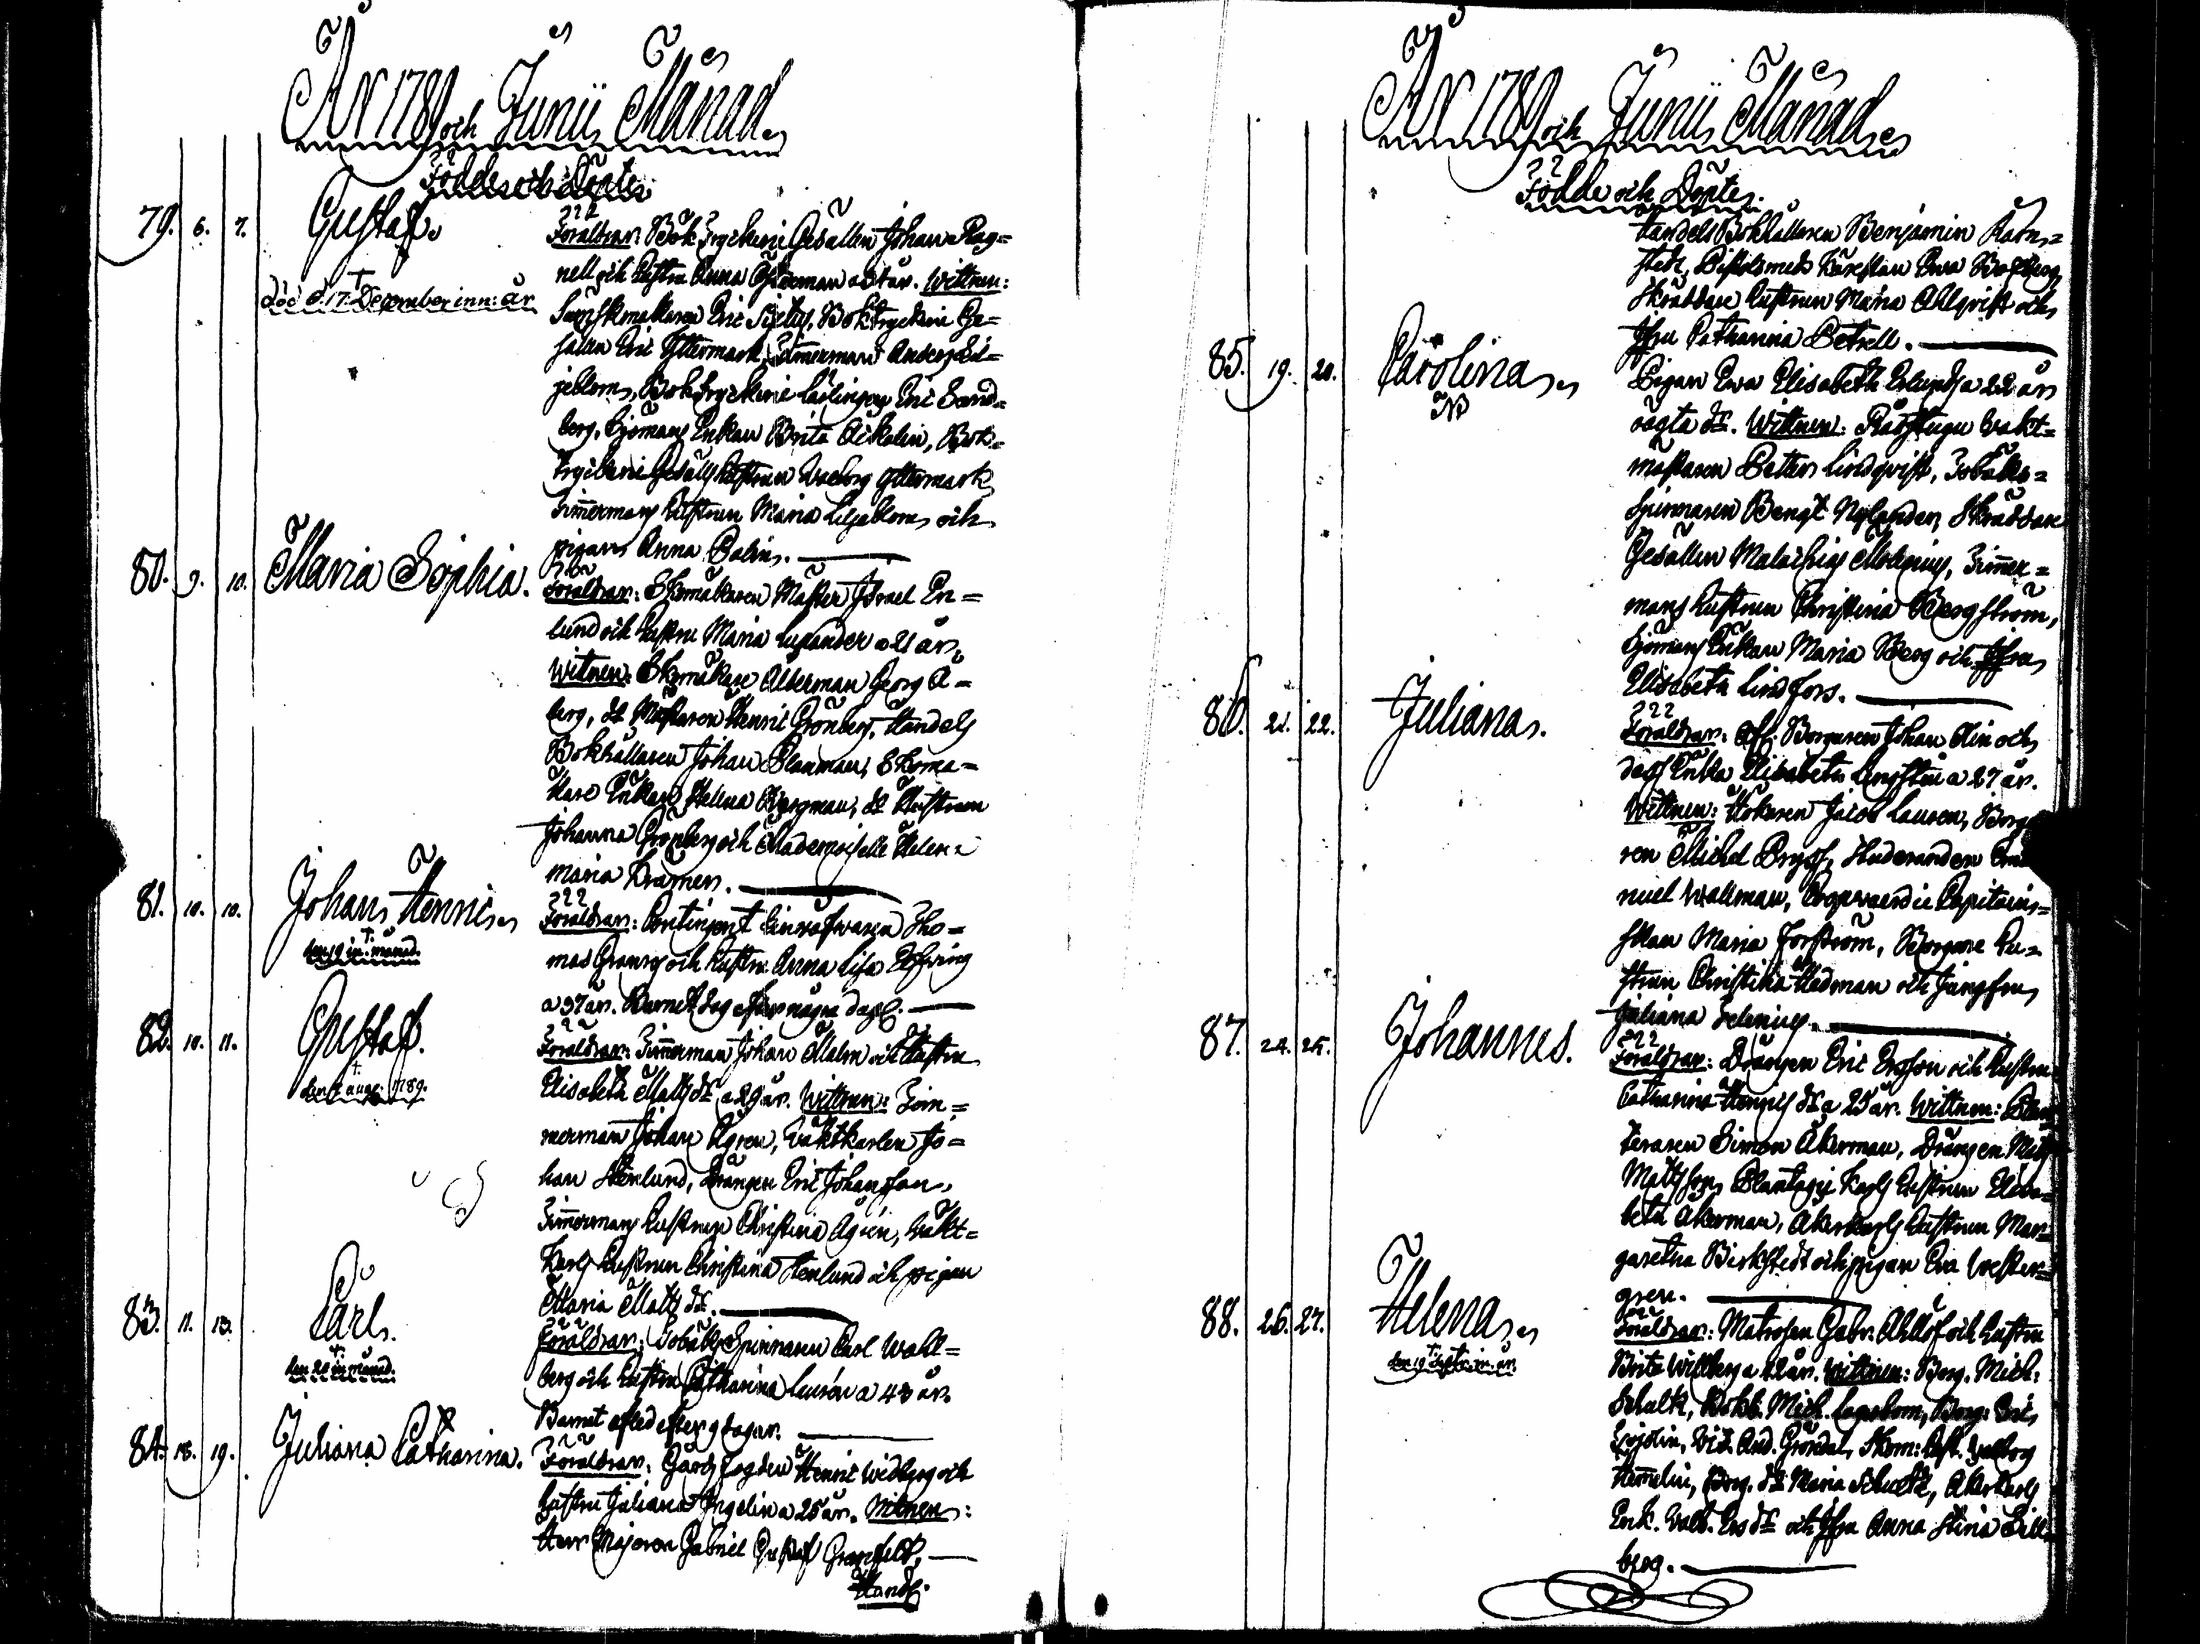 År 1789 och Junii Månad.
Födde och Döpte.
79. 6. 7. Gustaf.
död d. 17. December inn: år
Föräldrar: Bok Tryckeri Gesällen Johan Rag=
nell och hustru Anna Öhrman a år. Wittnen:
Eric Sixtus, Boktryckeri Ge=
sällen Eric Yttermark, Timmerman Anders Lil=
jeblom, Boktryckeri Lärlingen Eric Sand=
berg, Sjömans Enkan Brita Aikalin, Bok=
tryckeri Gesälls hustrun Walborg Yttermark
Timmermans hustrun Maria Liljeblom och
pigan Anna Palin.
80. 9. 10. Maria Sophia.
Föräldrar: Skomakaren Mäster Israel En=
lund och hustru Maria a 21 år.
Witnen: Skomakare Ålderman Georg A=
berg, dt Mästaren Henric Grönberg, Handels
Bokhållaren Johan Planman, Skoma=
kare Enkan Helena Bergman, dt Hustrun
Johanna Grönberg och Mademoiselle Helena
Maria Kramer.
81. 10. 10. Johan Henric.
den 19 in: månad.
Föräldrar: Contingent Tho=
mas och hustru Anna Lisa
a 37 år. Barnet dog efter några dagar.
82. 10. 11. Gustaf.
den aug: 1789.
Föräldrar: Timmerman Johan Malm och Hustru
Elisabeth Matts dr a 29 år. Wittnen: Tim=
merman Johan Ågren, Vaktkarlen Jo=
han Stenlund, Drängen Eric Johansson,
Timmermans hustrun Christina Ågren, Vakt=
Karls hustrun Christina Stenlund och pigan
Maria Matts dr.
83. 11. 13. Carl.
den 20 in: månad.
Föräldrar: Tobaks Spinnaren Carl Wahl=
berg och hustru Catharina a 43 år.
Barnet afled efter 9 dagar.
84. 18. 19. Juliana Catharina.
Föräldrar: Gårds Fogden Henric Widberg och
hustru Juliana Angelin a 25 år. Witnen:
Herr Majoren Gabriel Gustaf Granfelt,
Handels
År 1789 och Junii Månad.
Födde och Döpte.
Handels Bokhållaren Benjamin Karn=
stedt, Pistolsmeds Kärestan Ewa Bergberg
Skräddare hustrun Maria Ahlqvist och
Jfru Catharina Petrell.
85. 19. 20. Carolina.
Pigan Ewa Elisabeth Eslund a 22 år
oägta dr. Wittnen: Rådstugu Vakt=
mästaren Petter Lindqvist, Tobaks=
spinnaren Bengt Nylander, Skräddare
Gesällen Malachias Molenius, Timmer=
mans hustrun Christina Bergström,
Sjömans Enkan Maria Berg och Jfru
Elisabeth Lindfors.
86. 21. 22. Juliana.
Föräldrar: Aff. Borgaren Johan Alin och
dess Enka Elisabeth a 27 år.
Wittnen: Hökaren Jacob Lauren, Borga
ren Michel Bryss, Studeranden Ema
nuel Wallman, Coopvaerdie Capitains=
skan Maria Forsström, Borgare Hu=
strun Christina Hedman och Jungfru
Juliana Selenius.
87. 24. 25. Johannes.
Föräldrar: Drängen Eric Ersson och hustru
Catharina Henrics dr a 25 år. Wittnen: Plan
teraren Simon Åkerman, Drängen Matts
Mattsson, Plantage Karls hustrun Elisa=
beth Åkerman, Åkerkarls hustrun Mar=
garetha Birkstedt och pigan Eva Wester=
gren.
88. 26. 27. Helena.
den 19 Septr. in. år.
Föräldrar: Matrosen Gabr. Ahllöf och hustru
Brita Willberg a 22 år. Wittnen: Borg. Mich.
Schultz, Bokh. Mich. Lagerbom, Borg. Eric
And. Gröndal, Skom: hust. Valborg
Hemelin, Borg. dt Maria Schultz, Åkerkarls
Enk. Valb. Ers dr och Jfru Anna Stina Sill
berg.